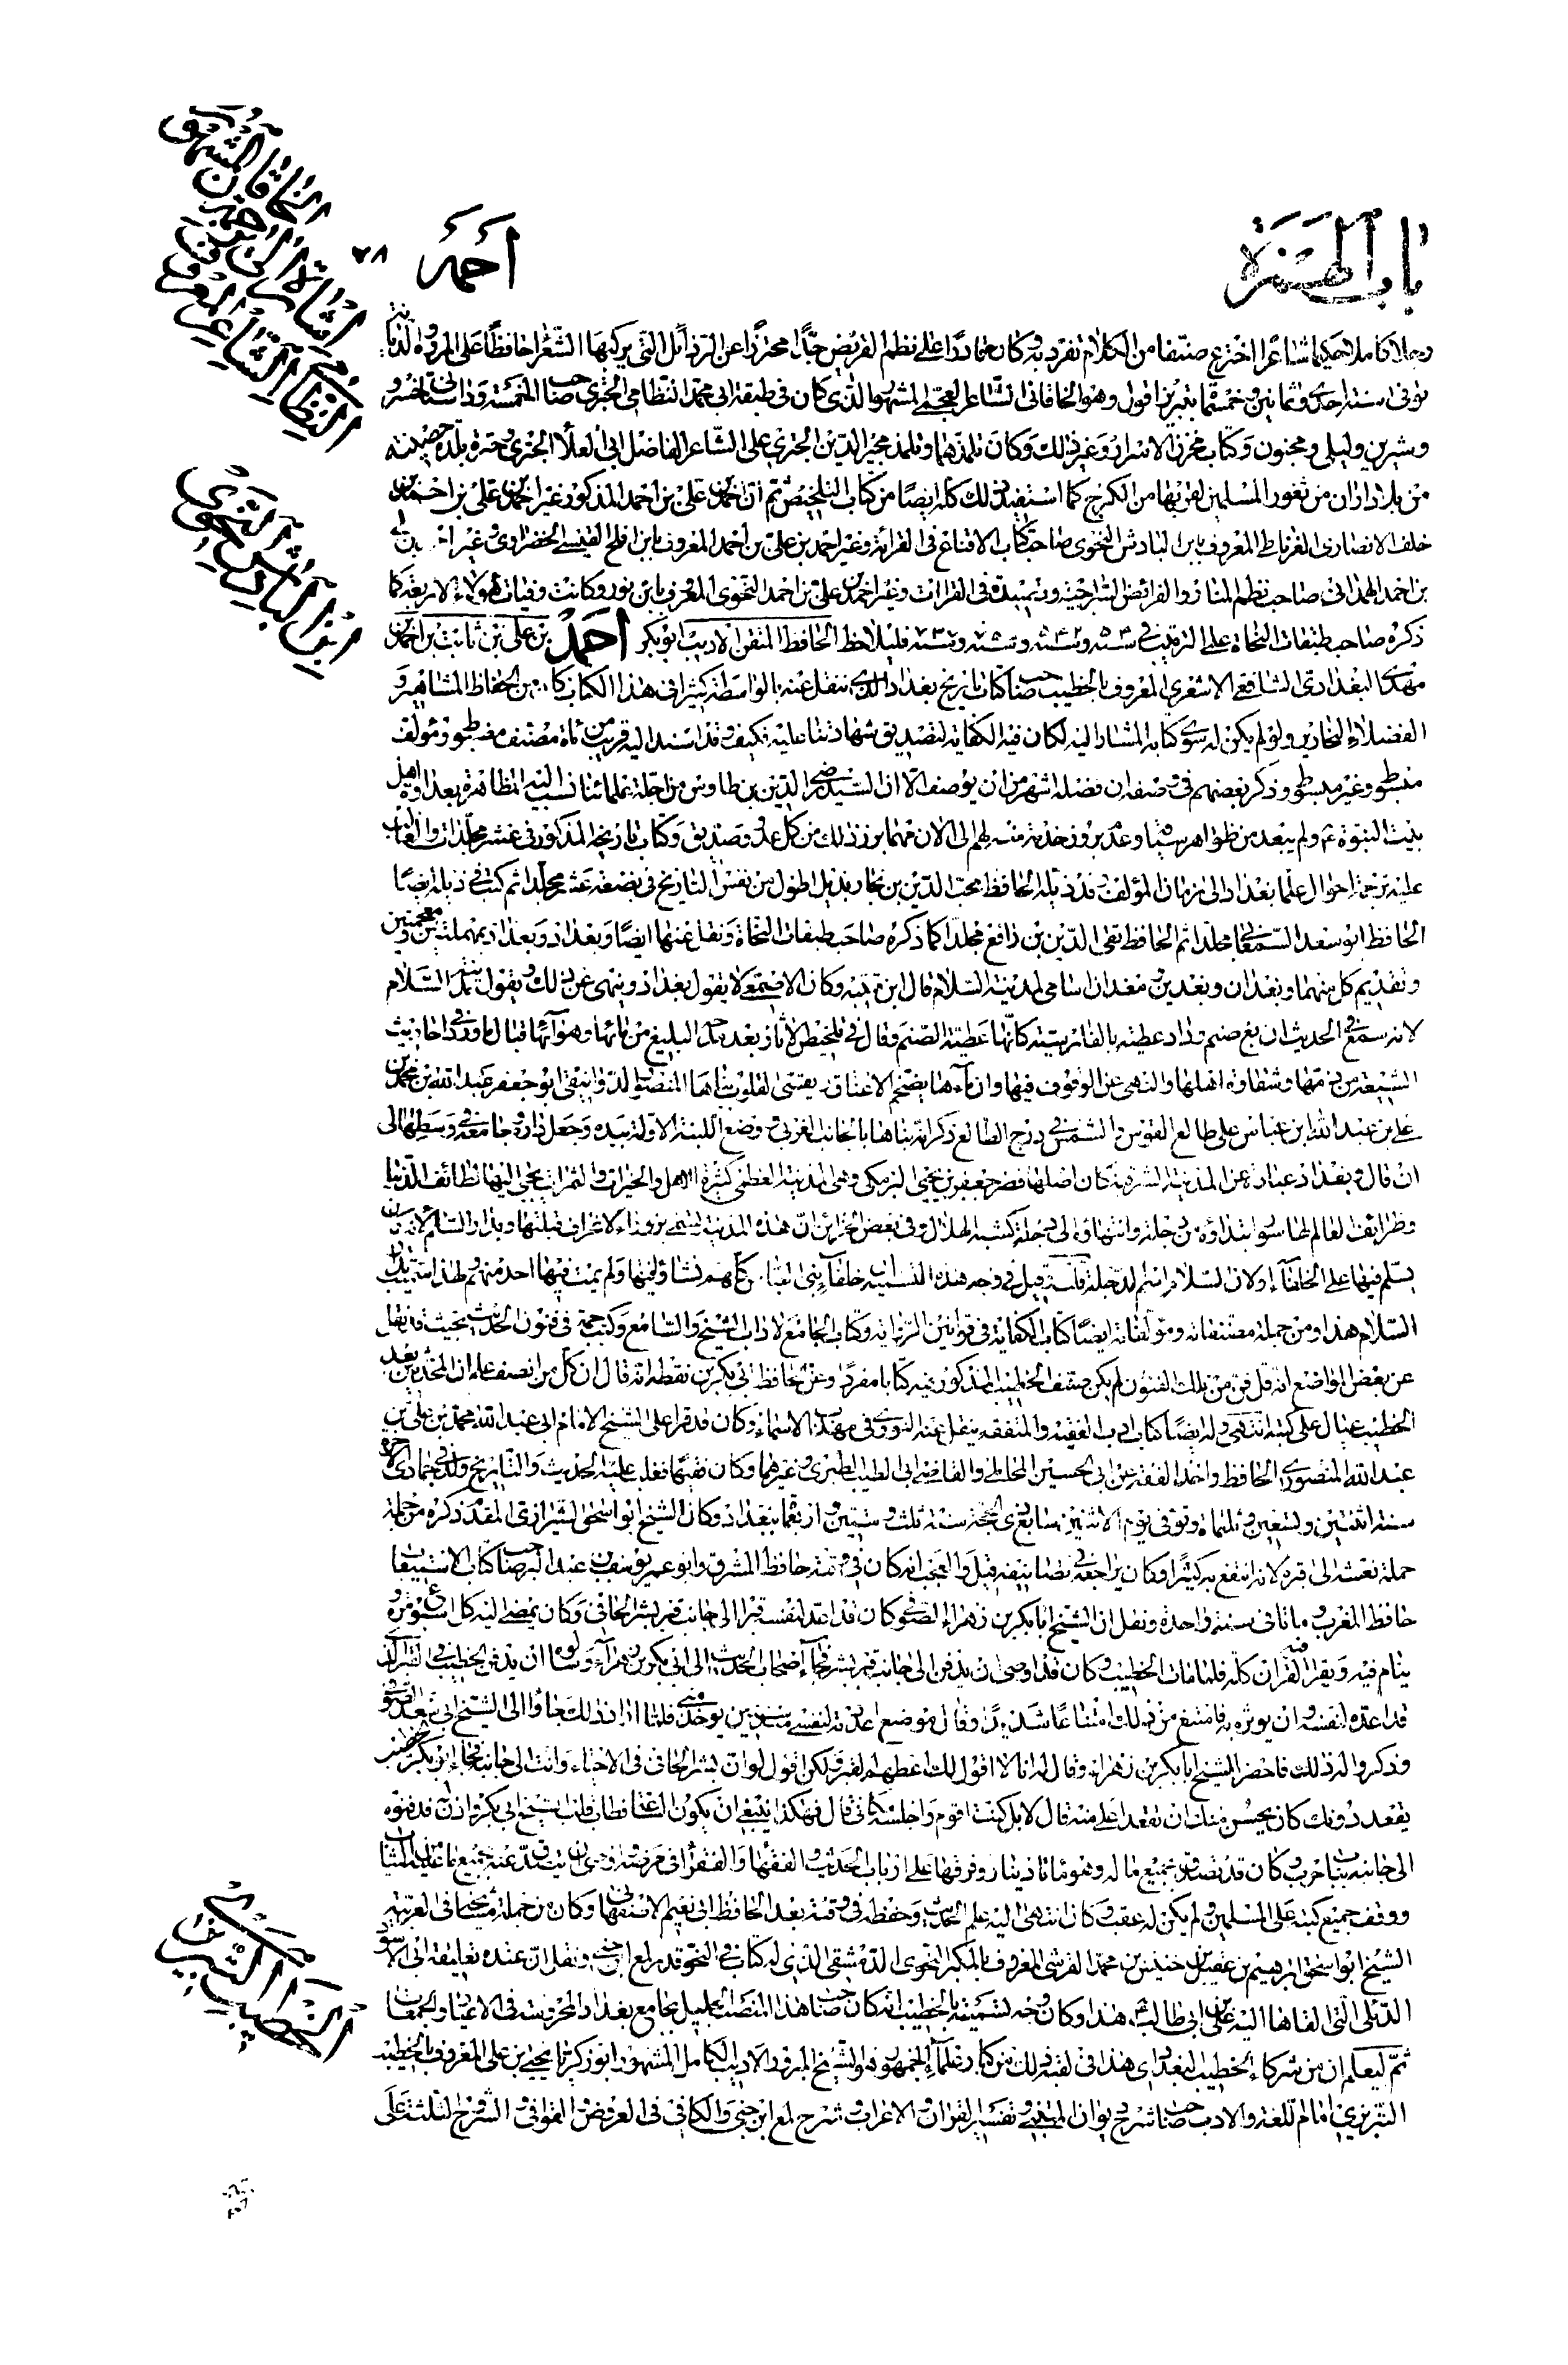 باب الهمزة
أحمد
٧٨
رجلا كاملا حكيما شاعرا اخترع صنفا من الكلام تفرد به وكان قادرا على نظم القريض جدا محترزا عن الرذائل التي يركبها الشعراء حافظا على المروة والديانة
توفى سنة احدى وثمانين وخمسمائة بتبريز اقول وهو الخاقاني الشاعر العجمي المشهور الذي كان في طبقة ابي محمد النظامي الجنزي صاحب الخمسة وداستان خسرو
وشيرين وليلى ومجنون وكتاب مخزن الاسرار وغير ذلك وكان تلمذهما وتلمذ مجير الدين الجنزي على الشاعر الفاضل ابي العلاء الجنزي وجنزة بلدة حصينة
من بلاد اران من ثغور المسلمين لقربها من الكرج كما استفيد ذلك كله ايضا من كتاب التلخيص ثم ان احمد بن علي بن احمد المذكور غير احمد بن علي بن احمد بن
خلف الانصاري الغرناطي المعروف بابن الباذش النحوي صاحب كتاب الاقناع في القرائة وغير احمد بن علي بن احمد المعروف بابن افلح القيسي الخضراوي وغير احمد بن علي
بن احمد الهمداني صاحب نظم المنار والفرائض السراجية وقصيدة في القراآت وغير احمد بن علي بن احمد النحوي المعروف بابن نور وكانت وفيات هؤلاء الاربعة كما
ذكره صاحب طبقات النحاة على الترتيب في سنة وسنة وسنة وسنة فليلاحظ الحافظ المتقن الاديب ابو بكر أحمد بن علي بن ثابت بن احمد بن
مهدي البغدادي الشافعي الاشعري المعروف بالخطيب صاحب كتاب تاريخ بغداد الذي ننقل عنه بالواسطة كثيرا في هذا الكتاب كان من الحفاظ المشاهير و
الفضلاء النحارير ولو لم يكن له سوى كتابه المشار اليه لكان فيه الكفاية لتصديق شهادتنا عليه فكيف وقد اسند اليه قريب من مأة مصنف مضبوط ومؤلف
مبسوط وغير مبسوط وذكر بعضهم في صفته ان فضله اشهر من ان يوصف الا ان السيد رضي الدين بن طاوس من اجلة علمائنا نسب اليه التظاهر بعداوة اهل
بيت النبوة ولم يبعد من ظواهر
عليه ترجمة احوال علماء بغداد الى زمان المؤلف وقد ذيله الحافظ محب الدين بن نجار بذيل اطول من نفس التاريخ في بضعة عشر مجلدا ثم كتب في ذيله ايضا
الحافظ ابو سعد السمعاني مجلدا ثم الحافظ تقي الدين بن رافع مجلدا كما ذكره صاحب طبقات النحاة ونقل عنها ايضا وبغداد وبغداذ بمهملتين ومعجمتين
وتقديم كل منهما وبغدان وبغدين ومغدان اسامي لمدينة السلام قال ابن قتيبة وكان الاصمعي لا يقول بغداد وينهى عن ذلك ويقول مدينة السلام
لانه سمع في الحديث ان بغ صنم وداد عطية بالفارسية كانها عطية الصنم وقال في تلخيص الاثار بعد
الشيعة من ذمها وشقاوة اهلها والنهي عن الوقوف فيها بناها المنصور الدوانيقي ابو جعفر عبد الله بن محمد بن
علي بن عبد الله ابن عباس على طالع القوس والشمس في درج الطالع ذكر انه بناها بالجانب الغربي وضع اللبنة الاولى بيده وجعل داره وجامعه في وسطها الى
ان قال وبغداد عبارة عن المدينة الشرقية كان اصلها قصر جعفر بن يحيى البرمكي وهي المدينة العظمى كثيرة الاهل والخيرات والثمرات يجبى اليها لطائف الدنيا
وظرائف العالم
يسلم فيها على الخلفاء او لان السلام اسم لدجلة ولم يمت فيها احد منهم
السلام هذا ومن جملة مصنفاته ومؤلفاته ايضا كتاب الكفاية في قوانين الرواية وكتاب الجامع لاداب الشيخ والسامع وكتب جمة في فنون الحديث بحيث قد نقل
عن بعض المواضع انه قل فن من تلك الفنون لم يكن صنف الخطيب المذكور فيه كتابا مفردا وعن الحافظ ابي بكر بن نقطة انه قال ان كل من انصف علم ان المحدثين بعد
الخطيب عيال على كتبه انتهى وله ايضا كتاب ادب الفقيه والمتفقه ينقل عنه النووي في تهذيب الاسماء وكان قد قرا على الشيخ الامام ابي عبد الله محمد بن علي بن
عبد الله المنصوري الحافظ واخذ الفقه عن ابي الحسين المحاملي والقاضي ابي الطيب الطبري وغيرهما وكان فقيها فغلب عليه الحديث والتاريخ ولد في جمادى الاخرة
سنة اثنتين وتسعين وثلثمائة وتوفى يوم الاثنين سابع ذي الحجة سنة ثلث وستين واربعمائة ببغداد وكان الشيخ ابو اسحق الشيرازي المقدم ذكره من جملة
حملة نعشه الى قبره لانه انتفع به كثيرا وكان يراجعه في تصانيفه قيل والعجب انه كان في وقته حافظ المشرق وابو عمر يوسف بن عبد البر صاحب كتاب الاستيعاب
حافظ المغرب وماتا في سنة واحدة ونقل ان الشيخ ابا بكر بن زهراء الصوفي كان قد اعد لنفسه قبرا الى جانب قبر بشر الحافي وكان يمضي اليه كل اسبوع مرة و
ينام فيه ويقرا القران كله فلما مات الخطيب وكان قد اوصى ان يدفن الى جانب قبر بشر فجاء اصحاب الحديث الى ابي بكر بن زهراء وسألوه ان يدفن الخطيب في القبر الذي
قد اعده لنفسه وان يوثره به فامتنع من ذلك امتناعا شديدا وقال موضع اعددته لنفسي منذ سنين يؤخذ مني فلما راوا ذلك جاؤا الى الشيخ ابي سعد الصوفي
وذكروا له ذلك فاحضر الشيخ ابا بكر بن زهراء وقال له انا لا اقول لك اعطهم القبر ولكن اقول لو ان بشر الحافي في الاحياء وانت الى جانبه فجاء ابو بكر الخطيب
يقعد دونك كان يحسن منك ان تقعد اعلى منه قال لا بل كنت اقوم واجلسه مكاني قال فهكذا ينبغي ان يكون الساعة فطاب قلب الشيخ ابي بكر واذن فدفنوه
الى جانبه بباب حرب وكان قد تصدق بجميع ماله وهو مائتا دينار وفرقها على ارباب الحديث والفقهاء والفقراء في مرضه واوصى ان يتصدق عنه بجميع ما عليه من الثياب
ووقف جميع كتبه على المسلمين ولم يكن له عقب وكان انتهى اليه علم الحديث وحفظه في وقته بعد الحافظ ابي نعيم الاصفهاني وكان من جملة مشيخة في العربية
الشيخ ابو اسحق ابراهيم بن عقيل بن حنيش بن محمد القرشي المعروف بالمكبر النحوي الدمشقي الذي له كتاب في النحو قدر لمع ابن جني ونقل ان عنده تعليقة ابي الاسود
الدئلي التي القاها اليه علي بن ابي طالب هذا وكان وجه تسميته بالخطيب انه كان صاحب هذا المنصب الجليل بجامع بغداد المحروسة في الاعياد والجمعات
ثم ليعلم ان من شركاء الخطيب البغدادي هذا في لقبه ذلك من كبار علماء الجمهور هو الشيخ المبرور الاديب الكامل المشهور ابو زكريا يحيى بن علي المعروف بالخطيب
التبريزي امام اللغة والادب صاحب شرح ديوان المتنبي وتفسير القران والاعراب وشرح لمع ابن جني والكافي في العروض والقوافي والشروح الثلثة على
ابن الباذش النحوي
الخطيب التبريزي